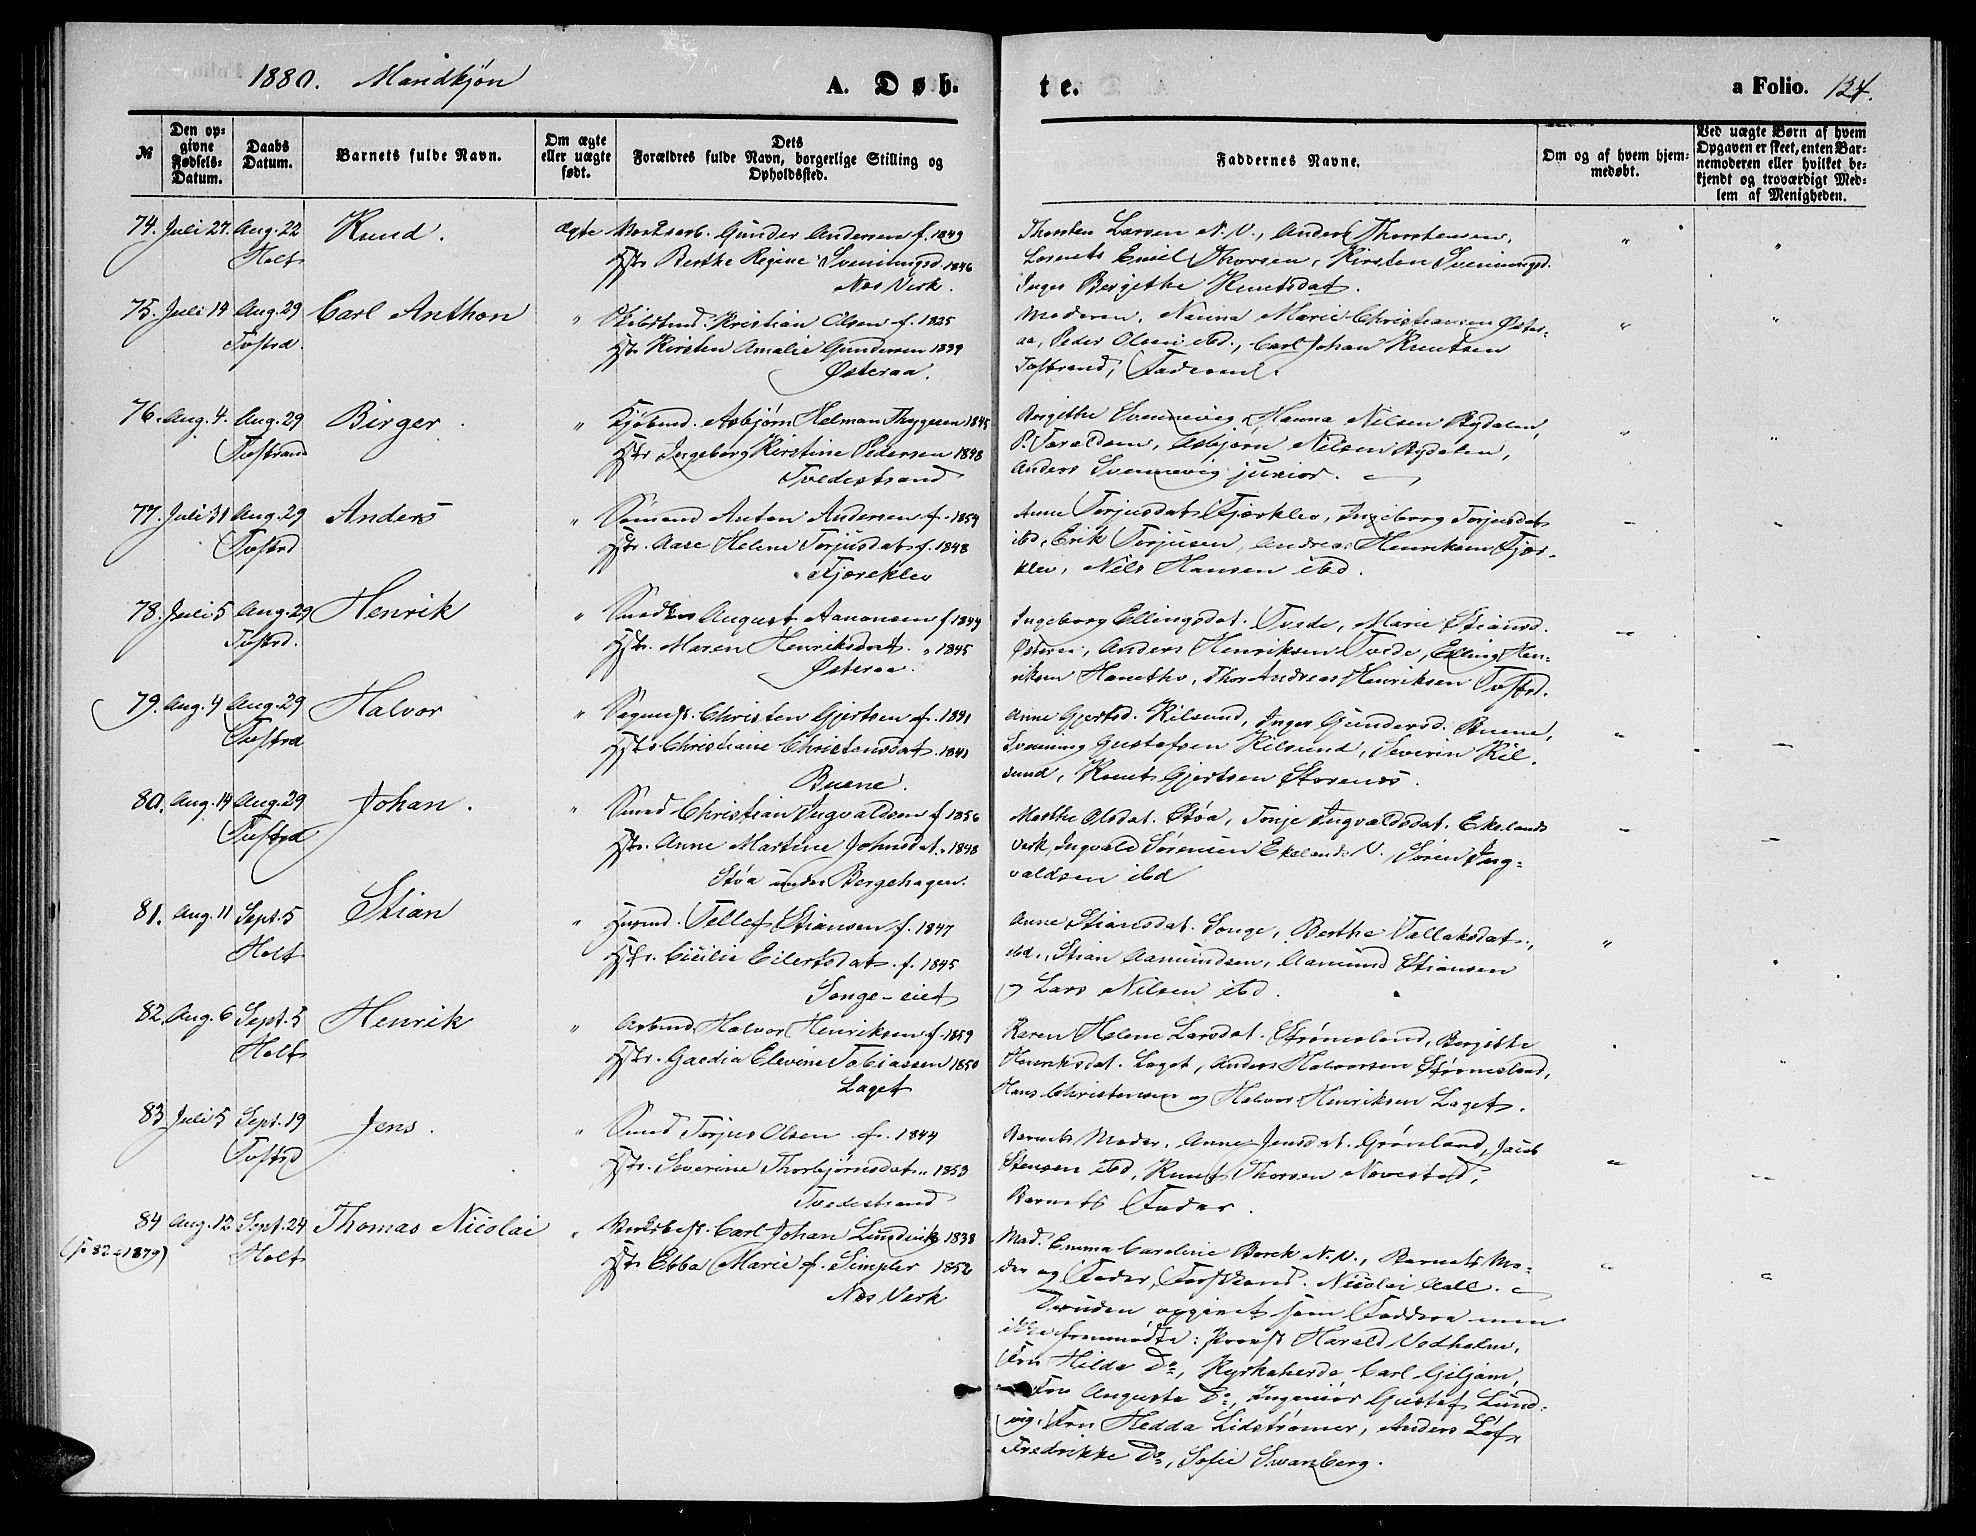 1880. Mandkjøn A. Døb- te. a Folio. 124.
№ Den opgivne Fødsels-Datum. Daabs Datum. Barnets fulde Navn. Om ægte eller uægte født. Dets Forældres fulde Navn, borgerlige Stilling og Opholdssted. Faddernes Navne. Om og af hvem hjemmedøbt. Ved uægte Børn af hvem Opgaven er skeet, enten Barnemoderen eller hvilket bekjendt og troværdigt Medlem af Menigheden.
74. Juli 27. Aug. 22 Knud. ægte Gunder Andersen f. 1849 Thorsten Larsen N. V., Anders Thorstensen,
Holt Hstr. Berthe Regine Sveningsd. 1846 Emil Thorsen, Kirsten Sveningsd.
Næs Verk. Inger Bergithe Knutsdat.
75. Juli 14 Aug. 29 Carl Anthon " Kristian Olsen f. 1825 Moderen, Nanna Marie Christiansen Øster-
Tvstrd. Hstr. Kirsten Amalie Gundersen 1839 aa, Peder Olsen ibd., Carl Johan Knutsen
Østeraa. Tvstrand, Faderen.
76. Aug. 4. Aug. 29 Birger. " Kjøbmd. Asbjørn Helman Thygesen 1845 Bergithe Svennevig, Hanna Nilsen Rydalen,
Tvstrand Hstr Ingeborg Kirstine Pedersen 1848 P. Taraldsen, Asbjørn Nilsen Rydalen,
Tvedestrand Anders Svennevig junior.
77. Juli 31 Aug. 29 Anders " Sømand Anton Andersen f. 1854 Anne Torjusdat. Fjærklev, Ingeborg Torjusdat
Tvstrd Hstr. Aase Helene Torjusdat f. 1848 ibd, Erik Torjusen, Andreas Henriksen Fjær-
Fjæreklev klev, Nils Hansen ibd.
78. Juli 5 Aug. 29 Henrik " August Aanonsen f 1844 Ingeborg Ellingsdat. Tvede, Marie Stiansd.
Tvstrd. Hstr. Maren Henriksdat. " 1845 Østeraa, Anders Henriksen Tvede, Elling Hen-
Østeraa. riksen Hanetho, Thor Andreas Henriksen Tvstrd.
79. Aug. 4 Aug. 29 Halvor " Christen Gjertsen f. 1841 Anne Gjertsd. Kilsund, Inger Gundersd. Buene,
Tvstrd Hstr. Christiane Christensdat. 1841 Svening Gustafsen Kilsund, Severin Kil-
Buene. sund, Knut Gjertsen Storenes.
80. Aug. 14 Aug. 29 Johan. " Smed Christian Ingvaldsen f 1856 Marthe Olsdat. Støa, Tonje Ingvaldsdat. Ekelands
Tvstrd Hstr. Anne Martine Johnsdat. " 1848 Verk, Ingvald Sørensen Ekelands V. Søren Ing-
Støa under Bergehagen. valdsen ibd
81. Aug. 11 Sept. 5 Stian " Husmd. Tellef Stiansen f. 1847 Anne Stiansdat. Songe, Berthe Tallaksdat.,
Holt Hstr. Cicilie Eilertsdat. f. 1845 ibd., Stian Aamundsen, Aamund Stiansen
Songe-eiet og Lars Nilsen ibd.
82. Aug. 6 Sept. 5 Henrik " Arbmd. Halvor Henriksen f. 1859 Karen Helene Larsdat. Strømsland, Bergitte
Holt Hstr. Elevine Tobiassen 1850 Henriksdat. Laget, Anders Halvorsen Strømsland,
Laget Hans Christensen og Halvor Henriksen Laget.
83. Juli 5 Sept. 19 Jens. " Smed Torjus Olsen f. 1844 Barnets Moder, Anne Jensdat. Grønland, Jacob
Tvstrd Hstr. Severine Thorbjørnsdat. " 1853 Stensen ibd, Knut Thorsen Navestad,
Tvedestrand Barnets Fader.
84 Aug. 12 Sept. 24 Thomas Nicolai " Verksbest. Carl Johan Lundvik 1838 Mad. Emma Caroline Borck N. V., Barnets Mo-
(for 82 - 1879) Holt Hstr. Ebba Marie f. Simpler 1852 der og Fader, Forstkand. Nicolai Aall.
Næs Verk Desuden opgivet som Faddere men
ikke fremmødte: Provst Harald Vedholm,
Fru Hilda Do, Kyrkoherde Carl Giljam,
Fru Augusta Do, Ingeniør Gustaf Lund-
vig, Fru Hedda Lidstrømer, Anders Løf,
Fredrikke Do, Sofie Swanberg.